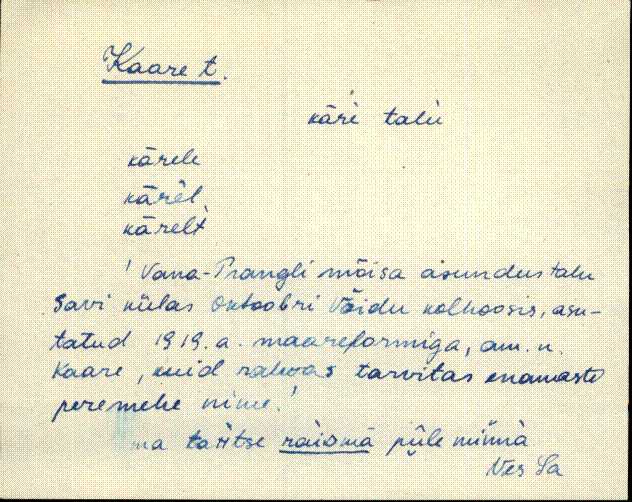 Kaare t.
käŕè talù
kārele
kārèl
kārelt̀
' Vana-Prangli mõisa asundustalu
Savi külas Oktoobri Võidu kolhoosis, asu-
tatud 1919. a. maareformiga, am. n.
Kaare, kuid rahvas tarvitas enamasti
peremehe nime.'
ma tariitse räismä püle minnä
Ves Sa